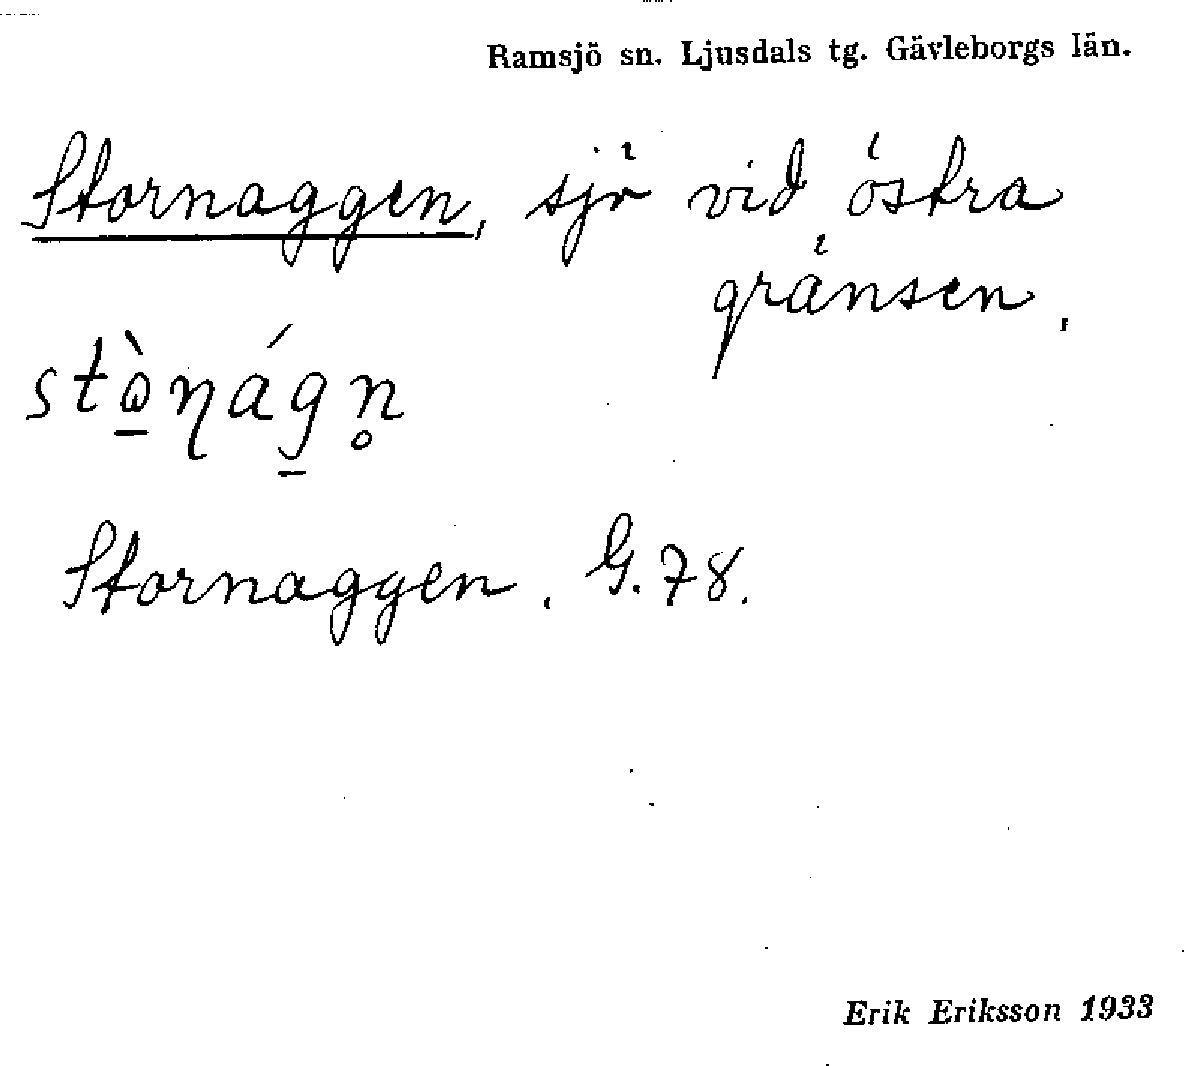 Ramsjö sn. Ljusdals tg. Gävleborgs län.
Stornaggen, sjö vid östra
gränsen.
stɷ̠̀ɳág̠n̥
Stornaggen. G.78.
Erik Eriksson 1933